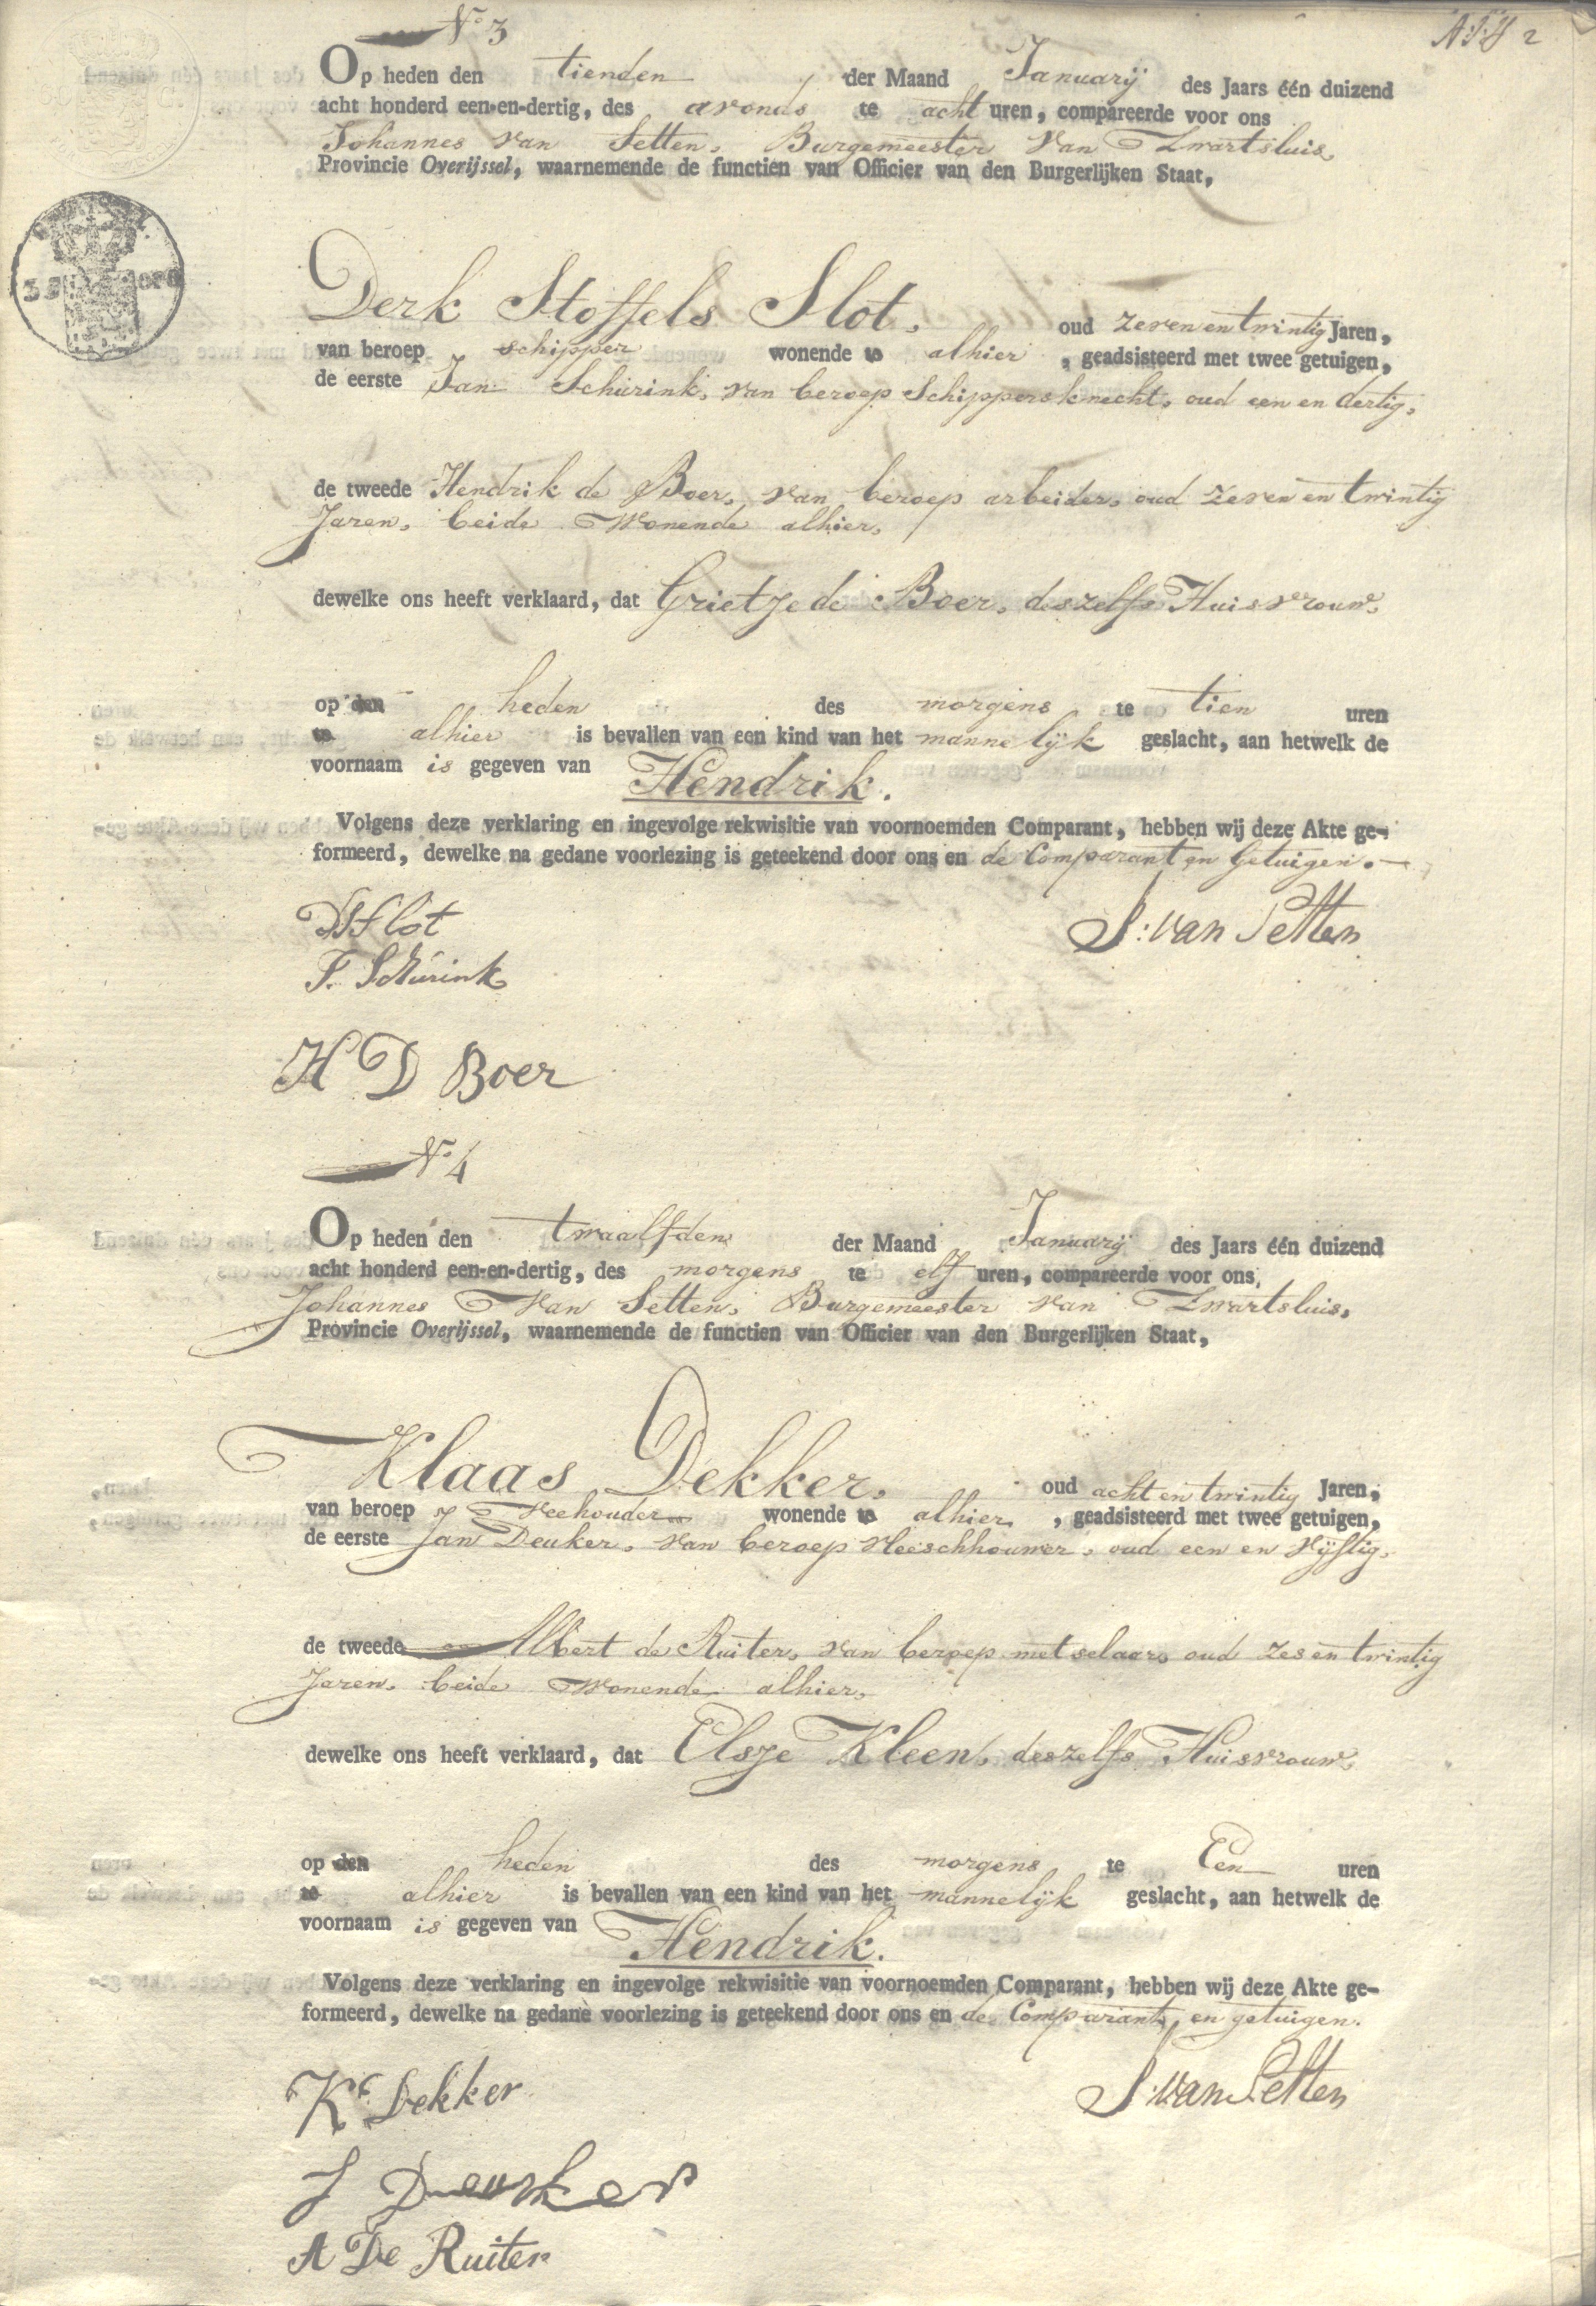 N.º 3
Op heden den tienden der Maand Januarij des Jaars één duizend
acht honderd een-en-dertig, des avonds te acht uren, compareerde voor ons
Johannes van Setten, Burgemeester van Zwartsluis,
Provincie Overijssel, waarnemende de functien van Officier van den Burgerlijken Staat,
Derk Stoffels Slot, oud zeven en twintig Jaren,
van beroep schipper wonende te alhier, geadsisteerd met twee getuigen,
de eerste Jan Schurink, van beroep Schippersknecht, oud een en dertig,
de tweede Hendrik de Boer, van beroep arbeider, oud zeven en twintig
Jaren, beide wonende alhier,
dewelke ons heeft verklaard, dat Grietje de Boer, deszelfs Huisvrouw,
op den heden des morgens te tien uren
te alhier is bevallen van een kind van het mannelijk geslacht, aan hetwelk de
voornaam is gegeven van Hendrik.
Volgens deze verklaring en ingevolge rekwisitie van voornoemden Comparant, hebben wij deze Akte ge-
formeerd, dewelke na gedane voorlezing is geteekend door ons en de Comparant en Getuigen.
DSSlot J: van Setten
J. Schurink
H D Boer
N.º 4
Op heden den twaalfden der Maand Januarij des Jaars één duizend
acht honderd een-en-dertig, des morgens te elf uren, compareerde voor ons,
Johannes van Setten, Burgemeester van Zwartsluis,
Provincie Overijssel, waarnemende de functien van Officier van den Burgerlijken Staat,
Klaas Dekker, oud acht en twintig Jaren,
van beroep Veehouder wonende te alhier, geadsisteerd met twee getuigen,
de eerste Jan Deuker, van beroep vleeschhouwer, oud een en vijftig,
de tweede Albert de Ruiter, van beroep metselaar, oud zes en twintig
Jaren, beide wonende alhier,
dewelke ons heeft verklaard, dat Elsje Kleen, deszelfs Huisvrouw,
op den heden des morgens te Een uren
te alhier is bevallen van een kind van het mannelijk geslacht, aan hetwelk de
voornaam is gegeven van Hendrik.
Volgens deze verklaring en ingevolge rekwisitie van voornoemden Comparant, hebben wij deze Akte ge-
formeerd, dewelke na gedane voorlezing is geteekend door ons en de Comparant, en getuigen.
K Dekker J: van Setten
J Deuker
A De Ruiter